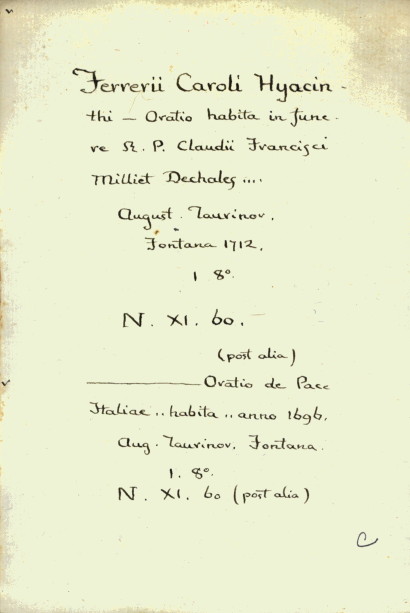 Ferrerii Caroli Hyacin-
thi — Oratio habita in fune-
re R. P. Claudii Francisci
Milliet Dechales ....
August. Taurinor.
Fontana 1712.
1 8°.
N. XI. 60.
(post alia)
———— Oratio de Pace
Italiae .. habita .. anno 1696.
Aug. Taurinor. Fontana.
1. 8°.
N. XI. 60 (post alia)
C